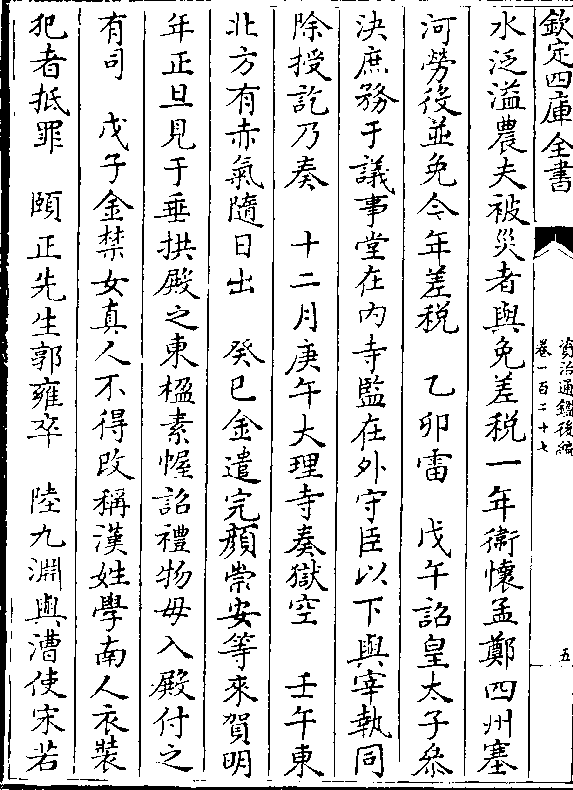 欽定四庫全書
資治通鑑後編
卷一百二十七
五
水泛溢農夫被災者與免差税一年衛懐孟鄭四州塞
河勞役並免今年差税　乙卯雷　戊午詔皇太子叅
決庶務于議事堂在内寺監在外守臣以下與宰執同
除授訖乃奏　十二月庚午大理寺奏獄空　壬午東
北方有赤氣隨日出　癸巳金遣完顔崇安等來賀明
年正旦見于垂拱殿之東楹素幄詔禮物毋入殿付之
有司　戊子金禁女真人不得改稱漢姓學南人衣裝
犯者抵罪　頤正先生郭雍卒　陸九淵與漕使宋若